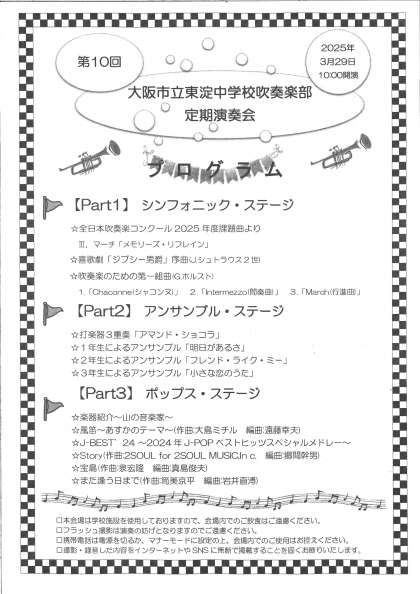 第10回
2025年
3月29日
10:00開演
大阪市立東淀中学校吹奏楽部
定期演奏会
プログラム
【Part1】 シンフォニック・ステージ
☆全日本吹奏楽コンクール2025年度課題曲より
Ⅲ．マーチ「メモリーズ・リフレイン」
☆喜歌劇「ジプシー男爵」序曲(J.シュトラウス2世)
☆吹奏楽のための第一組曲(G.ホルスト)
1.「Chaconne(シャコンヌ)」 2.「Intermezzo(間奏曲)」 3.「March(行進曲)」
【Part2】 アンサンブル・ステージ
☆打楽器3重奏「アマンド・ショコラ」
☆1年生によるアンサンブル「明日があるさ」
☆2年生によるアンサンブル「フレンド・ライク・ミー」
☆3年生によるアンサンブル「小さな恋のうた」
【Part3】 ポップス・ステージ
☆楽器紹介～山の音楽家～
☆風笛～あすかのテーマ～(作曲:大島ミチル 編曲:遠藤幸夫)
☆J-BEST’24～2024年J-POPベストヒッツスペシャルメドレー～
☆Story(作曲:2SOUL for 2SOUL MUSIC,In c. 編曲:郷間幹男)
☆宝島(作曲:泉宏隆 編曲:真島俊夫)
☆また逢う日まで(作曲:筒美京平 編曲:岩井直溥)
□本会場は学校施設を使用しておりますので、会場内でのご飲食はご遠慮ください。
□フラッシュ撮影は演奏の妨げとなりますのでご遠慮ください。
□携帯電話は電源を切るか、マナーモードに設定の上、会場内でのご使用はお控えください。
□撮影・録音した内容をインターネットやSNSに無断で掲載することを固くお断りいたします。